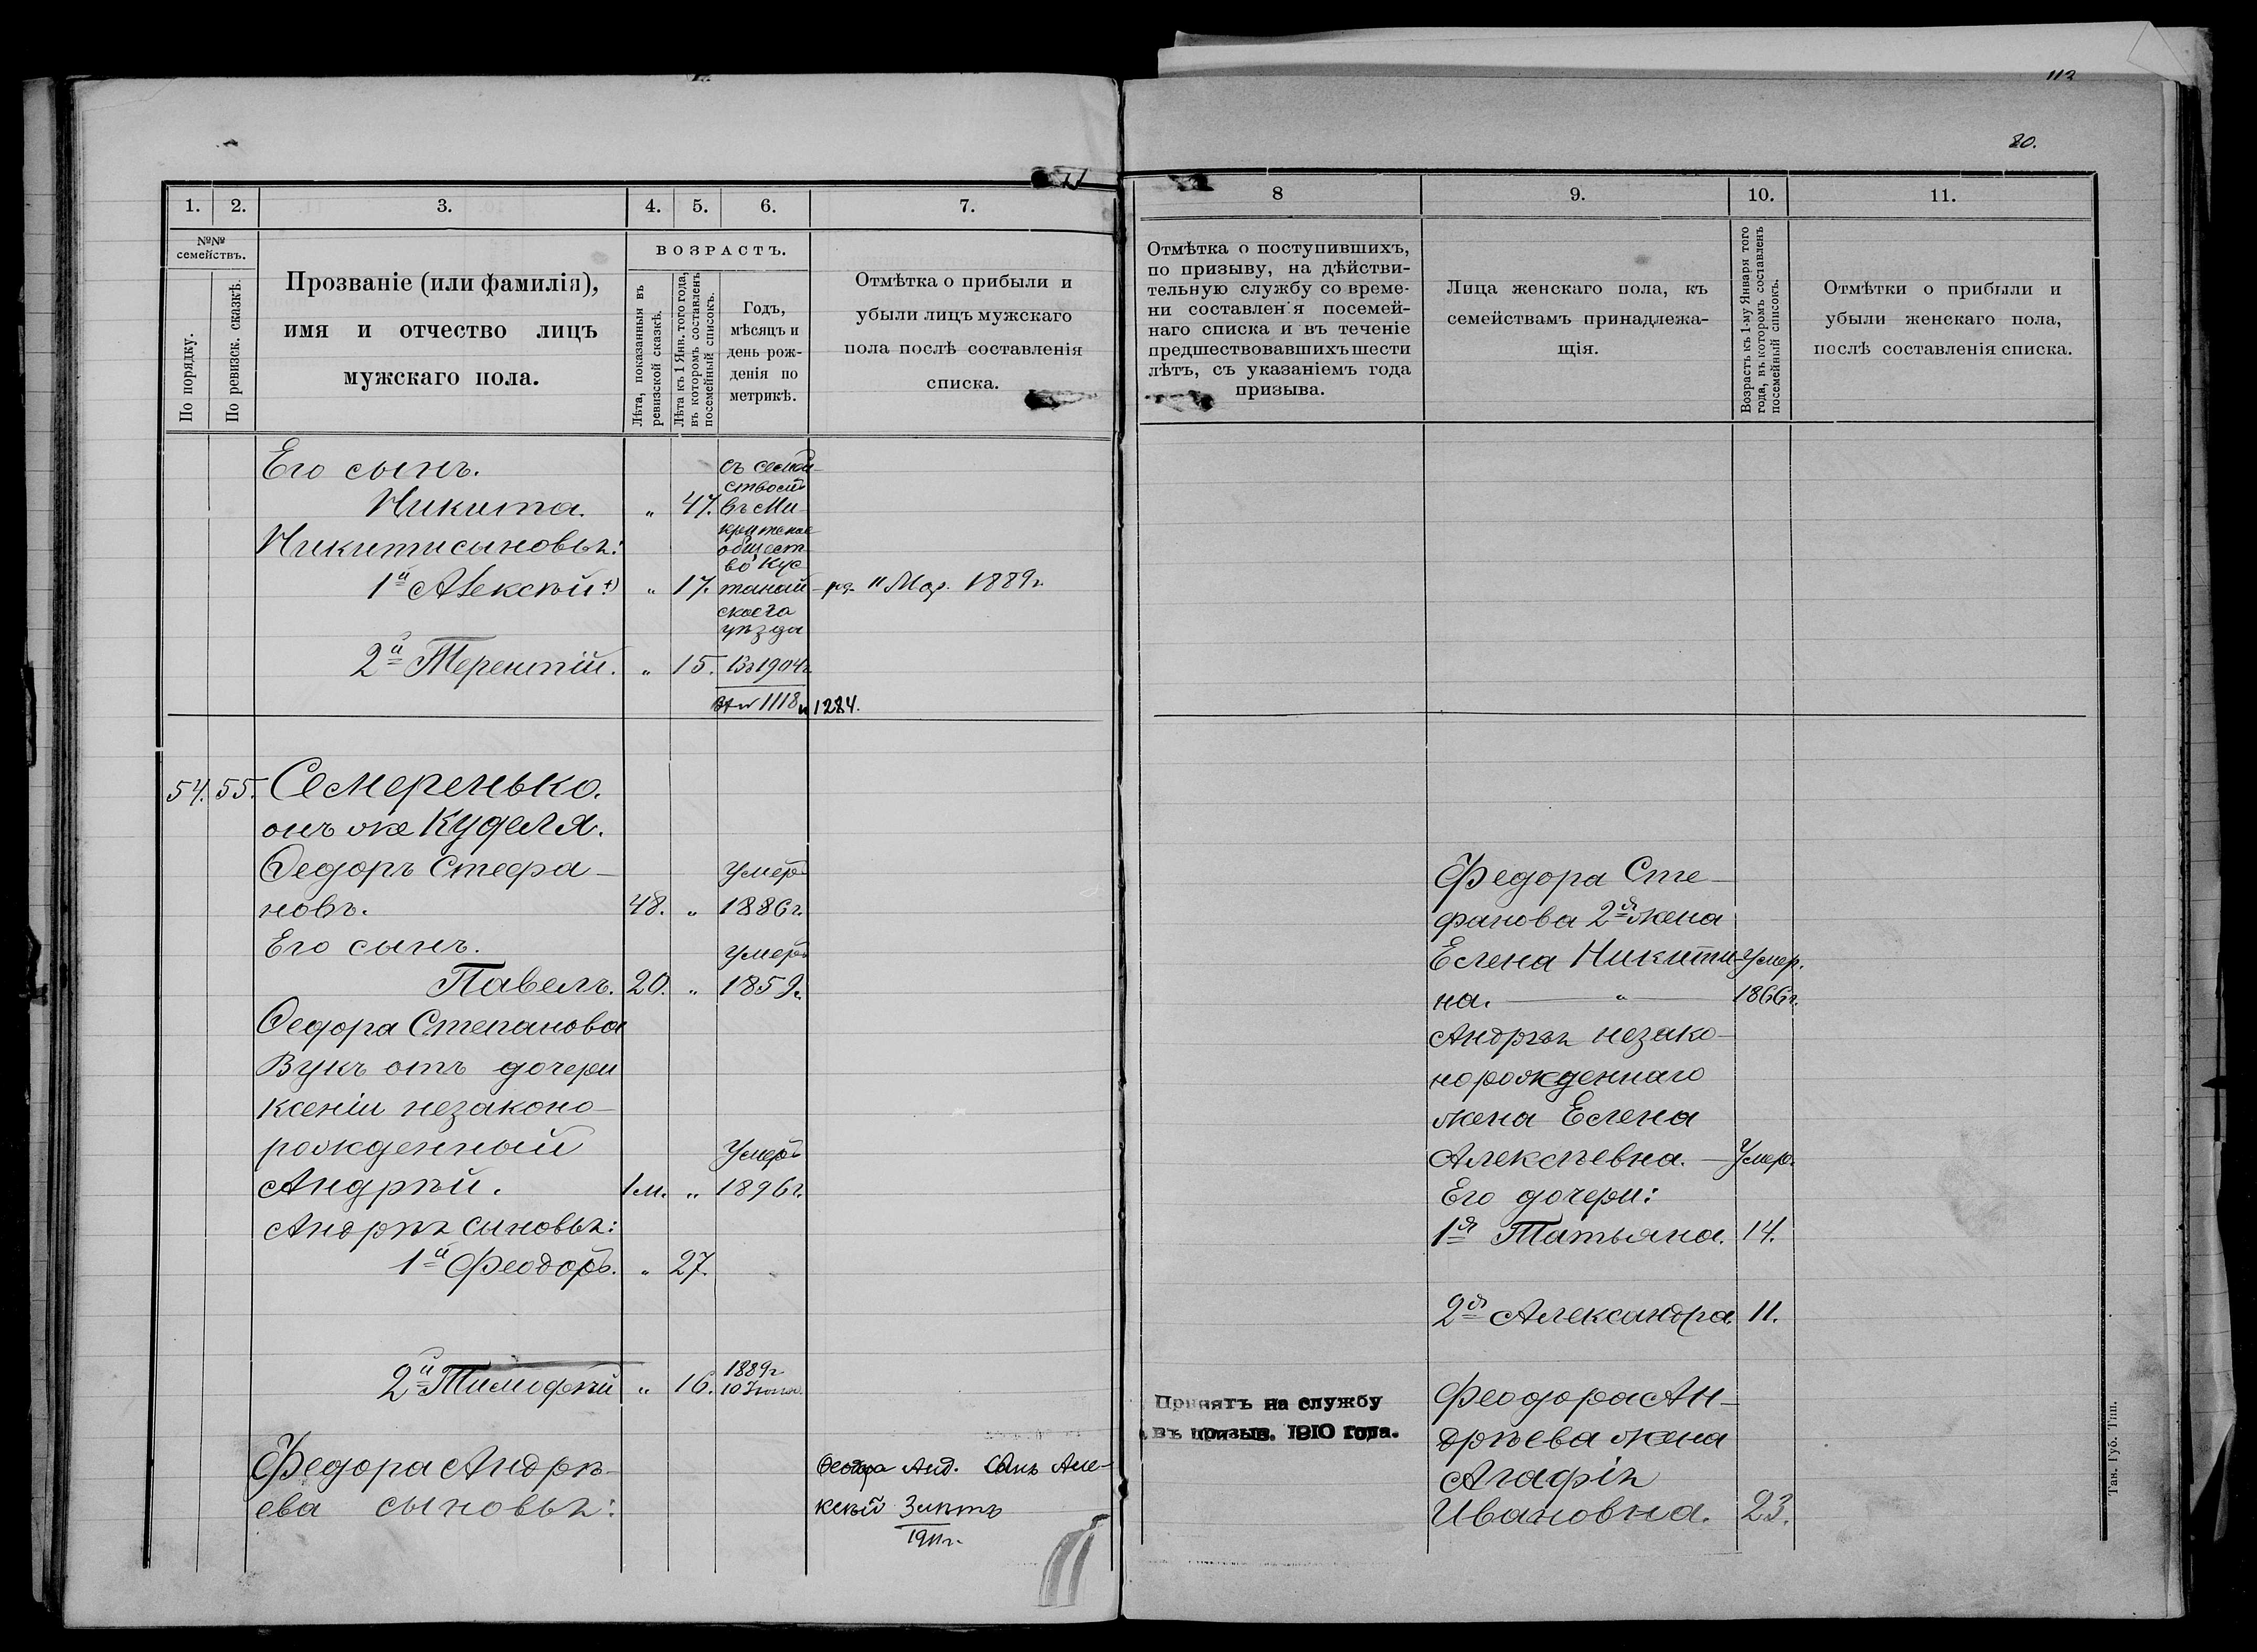 112
80.
1. 2. 3. 4. 5. 6. 7.
№№ семействъ.
По порядку.
По ревизск. сказкѣ.
Прозваніе (или фамилія),
имя и отчество лицъ
мужскаго пола.
ВОЗРАСТЪ.
Лѣта, показанныя въ
ревизской сказкѣ.
Лѣта къ 1 Янв. того года,
въ которомъ составленъ
посемейный списокъ.
Годъ,
мѣсяцъ и
день рож-
денія по
метрикѣ.
Отмѣтка о прибыли и
убыли лицъ мужскаго
пола послѣ составленія
списка.
Его сынъ.
Никита. „ 47.
Никиты сыновья:
1й Алексѣй +) „ 17. 11 Мар. 1889г.
2й Терентій. „ 15.
съ семей-
ствомъ
въ Ми-
общест-
во Кус-
танай-
скаго
уѣзда
Въ 1904г.
1118 и 1284.
54. 55. Семеренько.
онъ же Куделя.
Ѳедоръ Стефа- умеръ
новъ. 48. „ 1886г.
Его сынъ. умеръ
Павелъ. 20. „ 1859г.
Ѳедора Степанова
Внукъ отъ дочери
Ксеніи незаконо-
рожденный Умеръ
Андрѣй. 1м. „ 1896г.
Андрѣя сыновья:
1й Феодоръ. „ 27.
2й Тимофѣй „ 16. 1889г 10 Іюня.
Федора Андрѣ-
ева сыновья:
Ѳеодора Анд. Сынъ Але-
ксѣй
1911г.
8 9. 10. 11.
Отмѣтка о поступившихъ,
по призыву, на дѣйстви-
тельную службу со време-
ни составленія посемей-
наго списка и въ теченіе
предшествовавшихъ шести
лѣтъ, съ указаніемъ года
призыва.
Лица женскаго пола, къ
семействамъ принадлежа-
щія.
Возрастъ къ 1-му Января того
года, въ которомъ составленъ
посемейный списокъ.
Отмѣтки о прибыли и
убыли женскаго пола,
послѣ составленія списка.
Федора Сте-
фанова 2я жена
Елена Никити- Умер.
на. „ 1866г.
Андрѣя незако-
норожденнаго
жена Елена
Алексѣевна. Умер.
Его дочери:
1я Татьяна. 14.
2я Александра 11.
Принятъ на службу
въ призыв. 1910 года.
Феодора Ан-
дрѣева жена
Агафія
Ивановна. 23.
Тав. Губ. Тип.